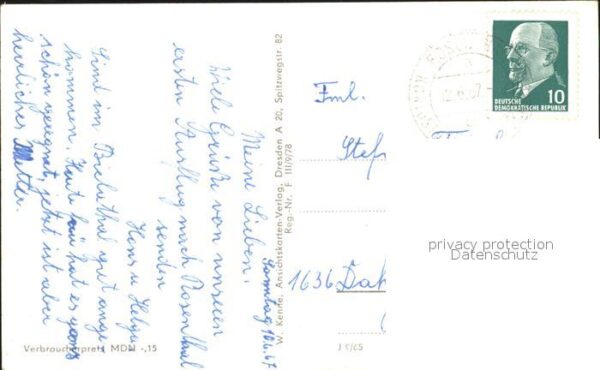 Sonntag 10.6.67
Meine Lieben,
Viele Grüße von unseren
ersten Ausflug nach Rosenthal
senden
Hans u. Helga
Sind im Bielathal gut ange-
kommen. Heute früh hat es ganz
schön geregnet, jetzt ist aber
herrliches Wetter.
Verbraucherpreis MDN -,15
W. Kenne, Ansichtskarten-Verlag, Dresden A 20, Spitzwegstr. 82
Reg.-Nr. F III/9/78
J 5/65
10
DEUTSCHE
DEMOKRATISCHE REPUBLIK
Fml.
Stef
1636 Dah
privacy protection
Datenschutz